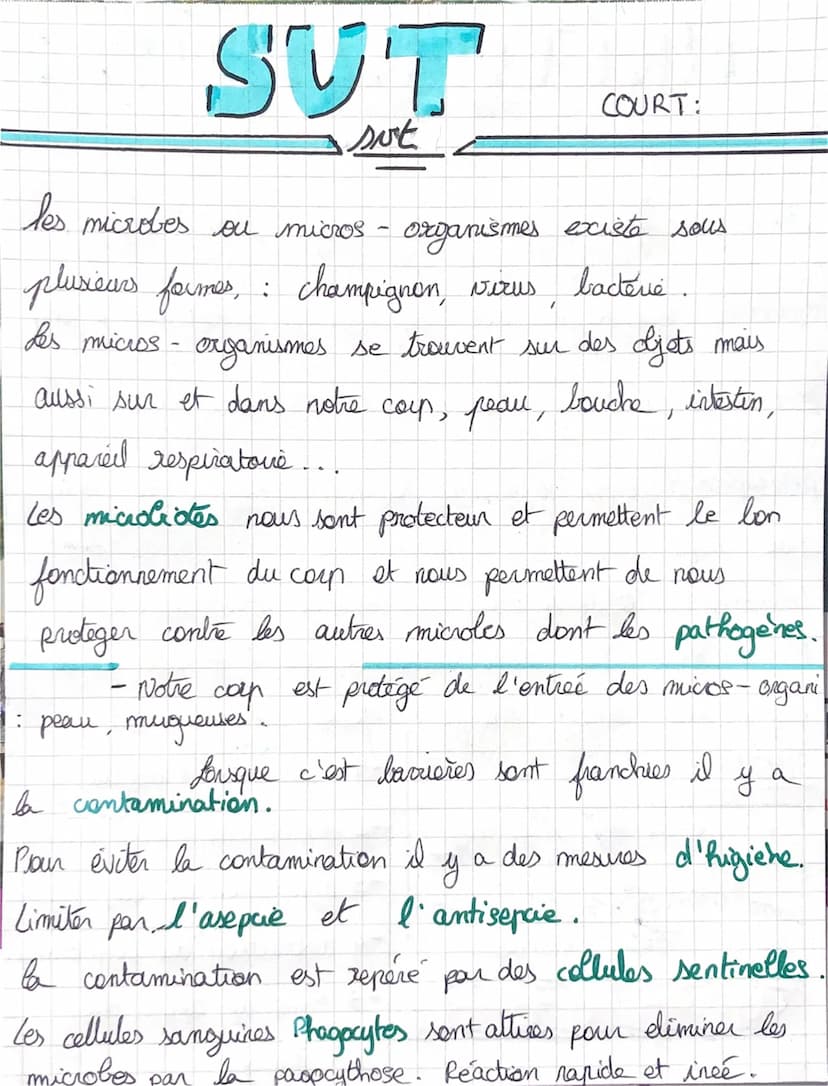 SVT
COURT:
svt
les microbes ou micros - organismes existe sous
plusieurs formes, : champignon, virus, bactérie.
Les micros - organismes se trouvent sur des objets mais
aussi sur et dans notre corp, peau, bouche, intestin,
appareil respiratoire...
Les microbiotes nous sont protecteur et permettent le bon
fonctionnement du corp et nous permettent de nous
proteger contre les autres microbes dont les pathogènes.
- Notre corp est protégé de l'entreé des micros - organi
: peau, muqueuses.
Lorsque c'est barrieres sont franchies il y a
la contamination.
Pour éviter la contamination il y a des mesures d'higiene.
Limiter par l'asepcie et l'antisepcie.
la contamination est repéré par des cellules sentinelles.
Les cellules sanguines Phagocytes sont attirés pour eliminer les
microbes par la pagocythose. Réaction rapide et ineé.